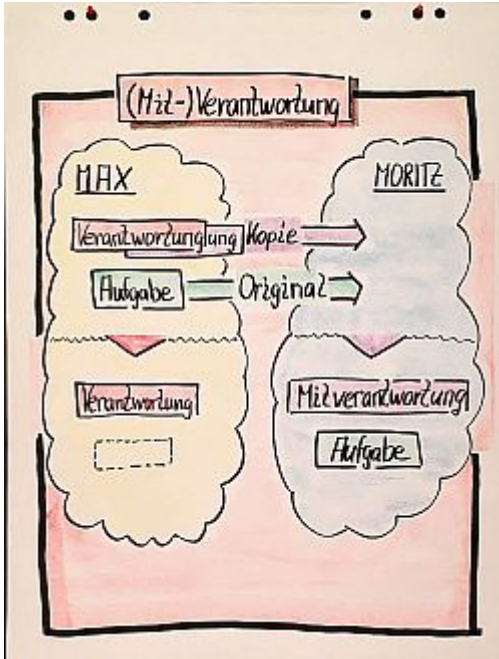 (Mit-)Verantwortung
MAX
MORITZ
Verantwortunglung Kopie
Aufgabe Original
Verantwortung
Mitverantwortung
Aufgabe